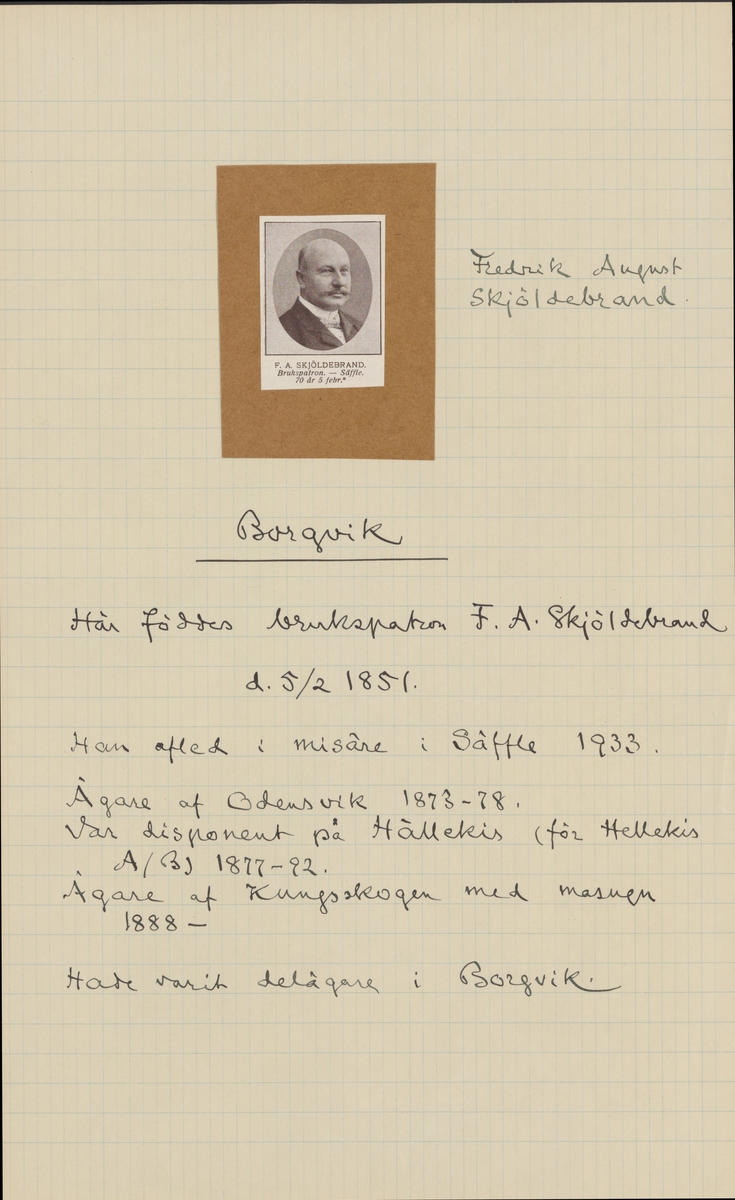 Fredrik August
Skjöldebrand.
F. A. SKJÖLDEBRAND.
Brukspatron. — Säffle.
70 år 5 febr.*
Borgvik
Här föddes brukspatron F. A. Skjöldebrand
d. 5/2 1851.
Han afled i misäre i Säffle 1933.
Ägare af Odensvik 1873-78.
Var disponent på Hällekis (för Hellekis
A/B) 1877-92.
Ägare af Kungsskogen med masugn
1888 —
Hade varit delägare i Borgvik.